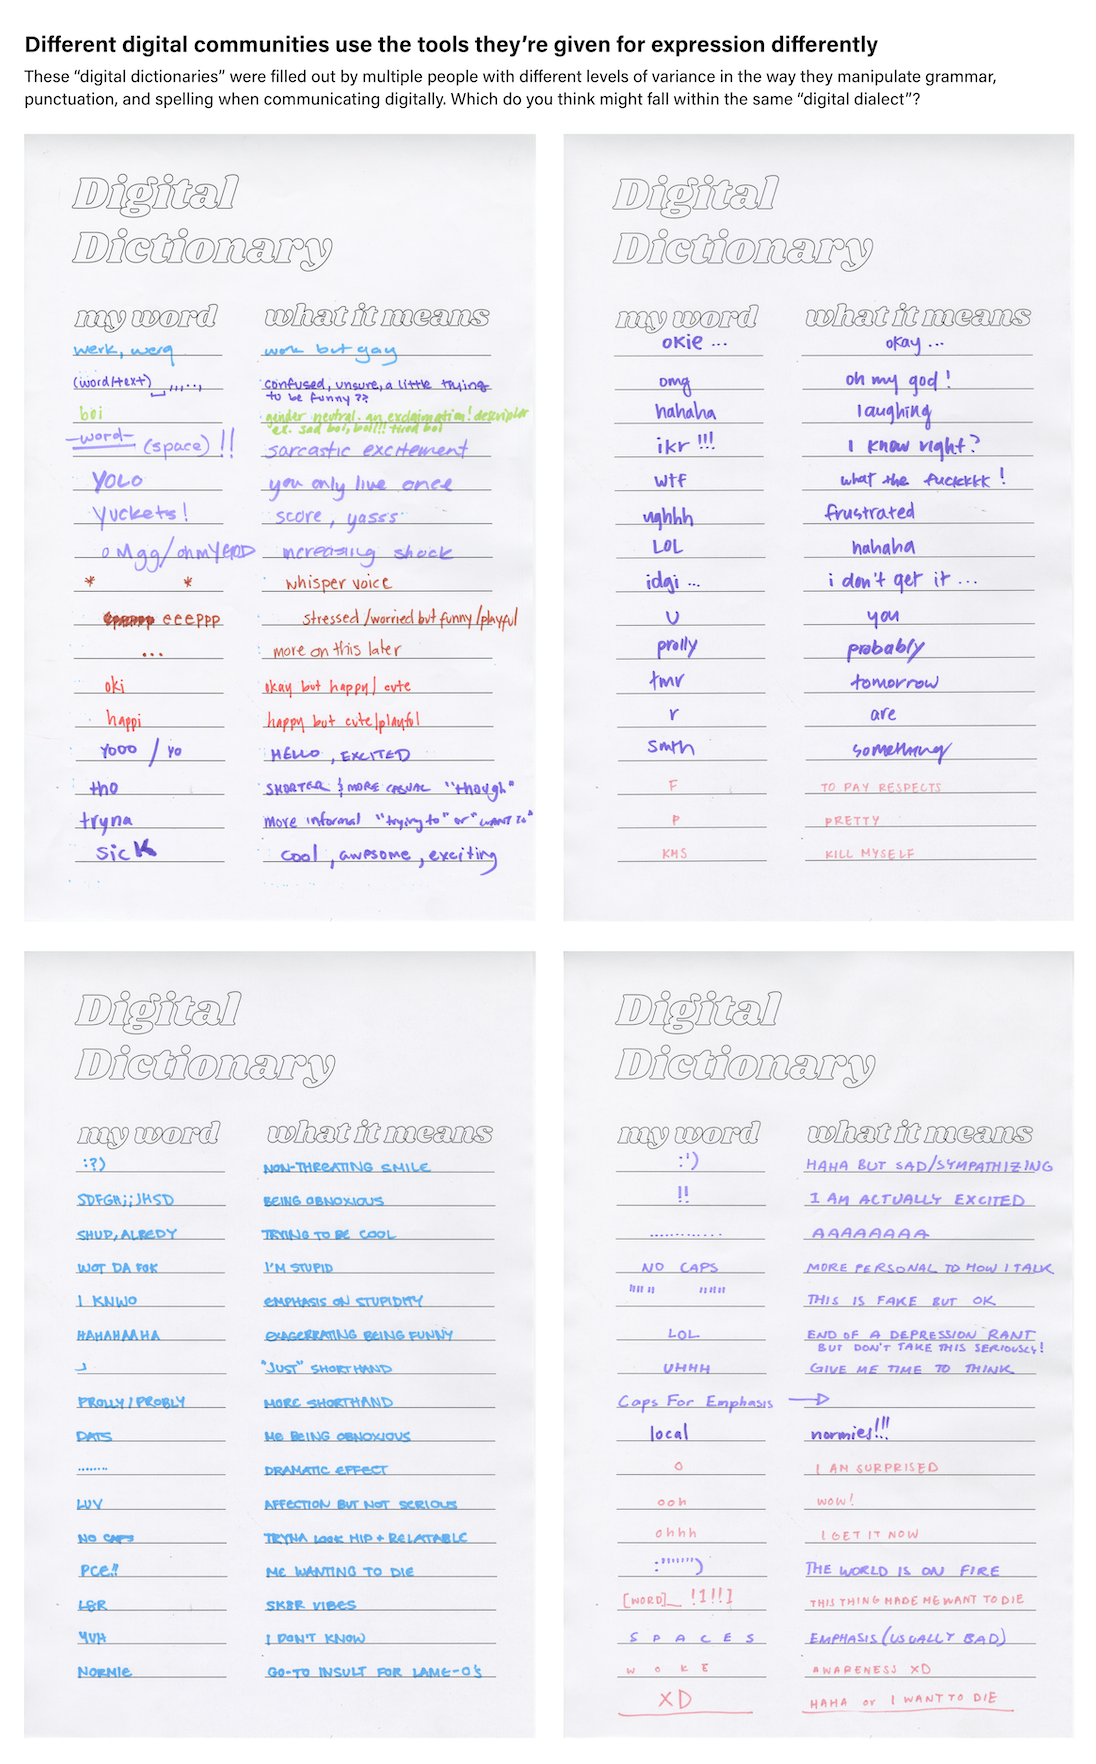 Different digital communities use the tools they’re given for expression differently
These “digital dictionaries” were filled out by multiple people with different levels of variance in the way they manipulate grammar,
punctuation, and spelling when communicating digitally. Which do you think might fall within the same “digital dialect”?
Digital
Dictionary
my word what it means
werk, werq work but gay
(word/text)␣,,,..., confused, unsure, a little trying
to be funny ??
boi gender neutral. an exclaimation! descriptor
ex. sad boi, boi!!! tired boi
-word- (space) !! sarcastic excitement
YOLO you only live once
Yuckets! score, yasss
oMgg/ohmYGOD increasing shock
* * whisper voice
eeeppp stressed/worried but funny/playful
... more on this later
oki okay but happy/cute
happi happy but cute/playful
Yooo / Yo HELLO, EXCITED
tho SHORTER & MORE CASUAL "though"
tryna More informal "trying to" or "WANT TO"
sicK cool, awesome, exciting
Digital
Dictionary
my word what it means
okie ... okay ...
omg oh my god!
hahaha laughing
ikr !!! I know right?
wtf what the fuckkkk!
ughhh frustrated
LOL hahaha
idgi ... i don't get it ...
U you
prolly probably
tmr tomorrow
r are
smth something
F TO PAY RESPECTS
P PRETTY
KMS KILL MYSELF
Digital
Dictionary
my word what it means
:?) NON-THREATING SMILE
SDFGH;;JHSD BEING OBNOXIOUS
SHUP, ALREDY TRYING TO BE COOL
WOT DA FOK I'M STUPID
I KNWO EMPHASIS ON STUPIDITY
HAHAHAAHA EXAGERRATING BEING FUNNY
J "JUST" SHORTHAND
PROLLY / PROBLY MORE SHORTHAND
DATS ME BEING OBNOXIOUS
........ DRAMATIC EFFECT
LUV AFFECTION BUT NOT SERIOUS
NO CAPS TRYNA LOOK HIP + RELATABLE
PCE!! ME WANTING TO DIE
L8R SK8R VIBES
YUH I DON'T KNOW
NORMIE GO-TO INSULT FOR LAME-O'S
Digital
Dictionary
my word what it means
:') HAHA BUT SAD/SYMPATHIZING
!! I AM ACTUALLY EXCITED
............ AAAAAAAA
NO CAPS MORE PERSONAL TO HOW I TALK
"""" """" THIS IS FAKE BUT OK
LOL END OF A DEPRESSION RANT
BUT DON'T TAKE THIS SERIOUSLY!
UHHH GIVE ME TIME TO THINK
Caps For Emphasis →
local normies!!!
O I AM SURPRISED
ooh WOW!
ohhh I GET IT NOW
:''''''') THE WORLD IS ON FIRE
[WORD]_ !1!!] THIS THING MADE ME WANT TO DIE
S P A C E S EMPHASIS (USUALLY BAD)
W O K E AWARENESS XD
XD HAHA or I WANT TO DIE